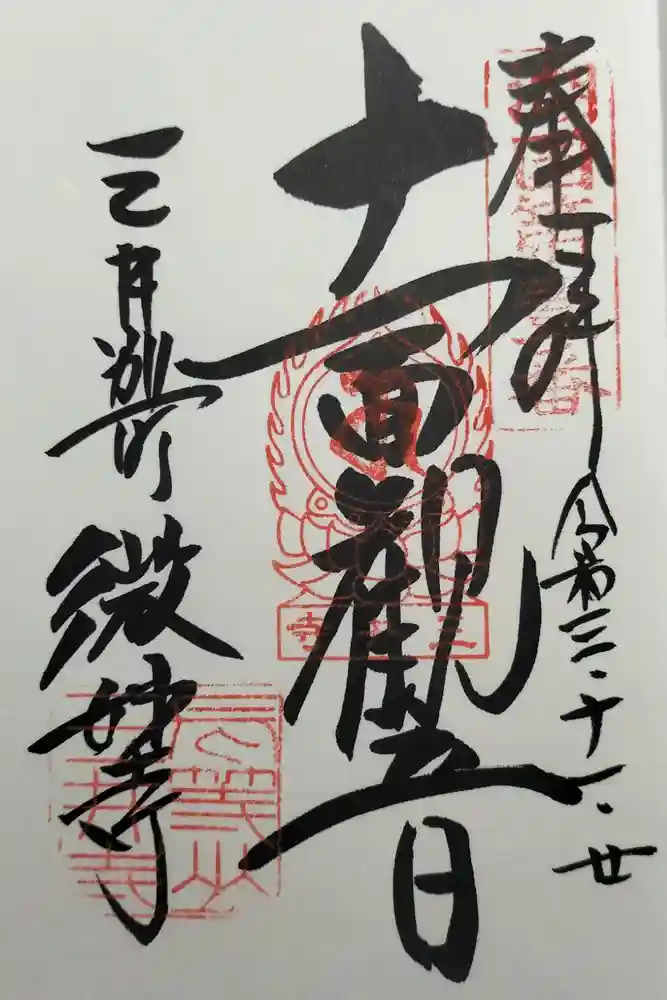 奉拝
令和三・十一・廿
十一面観音
三井別所
微妙寺
三井寺